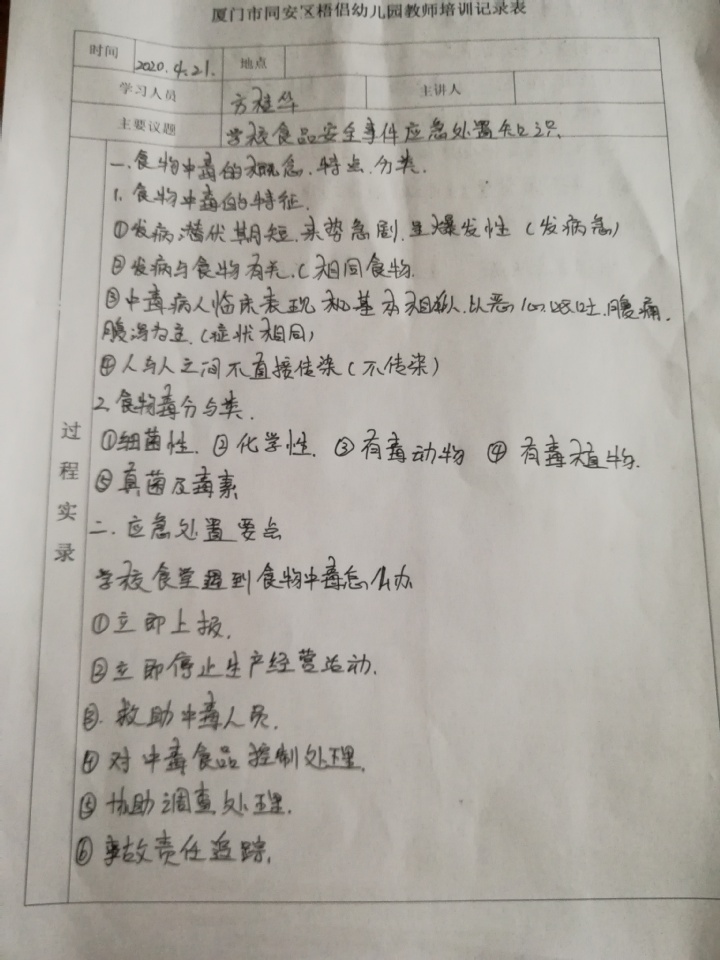 厦门市同安区梧侣幼儿园教师培训记录表
时间 2020.4.21. 地点
学习人员 方桂华 主讲人
主要议题 学校食品安全事件应急处置知识.
过程实录
一.食物中毒的概念.特点.分类.
1.食物中毒的特征.
①发病潜伏期短.来势急剧.呈爆发性(发病急)
②发病与食物有关.(相同食物.
③中毒病人临床表现和基本相似.以恶心.呕吐.腹痛.
腹泻为主.(症状相同)
④人与人之间不直接传染(不传染)
2.食物毒分与类.
①细菌性.②化学性.③有毒动物 ④有毒植物.
⑤真菌及毒素
二.应急处置要点
学校食堂遇到食物中毒怎么办
①立即上报.
②立即停止生产经营活动.
③.救助中毒人员.
④对中毒食品控制处理.
⑤协助调查处理.
⑥事故责任追踪.